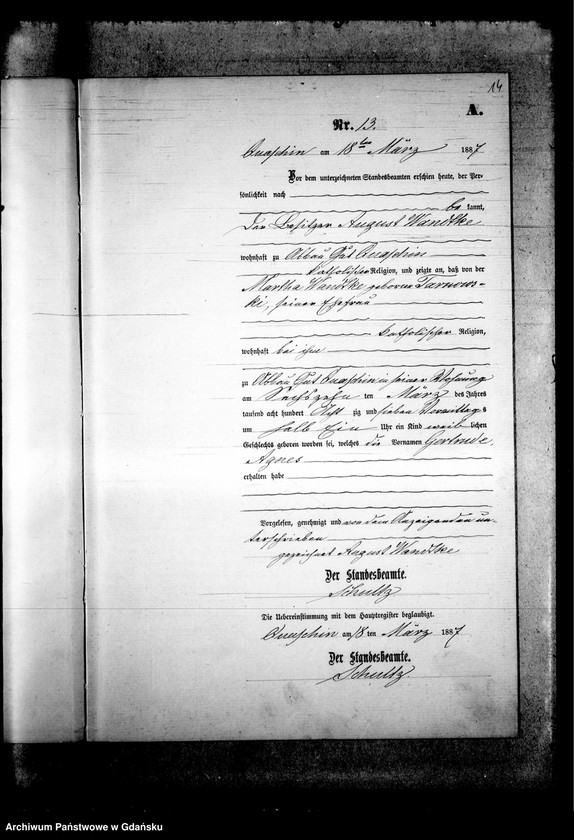 14
A.
Nr. 13.
Quaschin am 18ten März 1887
Vor dem unterzeichneten Standesbeamten erschien heute, der Per-
sönlichkeit nach
be kannt,
Der Besitzer August Wandtke
wohnhaft zu Abbau Gut Quaschin
katholischer Religion, und zeigte an, daß von der
Martha Wandtke geborne Tarnows-
ki, seiner Ehefrau
katholischer Religion,
wohnhaft bei ihm
zu Abbau Gut Quaschin in seiner Wohnung
am Sechszehn ten März des Jahres
tausend acht hundert Acht zig und sieben Vormittags
um halb Ein Uhr ein Kind weib lichen
Geschlechts geboren worden sei, welches die Vornamen Gertrude,
Agnes
erhalten habe
Vorgelesen, genehmigt und von dem Anzeigenden un-
terschrieben
gezeichnet August Wandtke
Der Standesbeamte.
Schultz
Die Uebereinstimmung mit dem Hauptregister beglaubigt.
Quaschin am 18 ten März 1887
Der Standesbeamte.
Schultz.
Archiwum Państwowe w Gdańsku